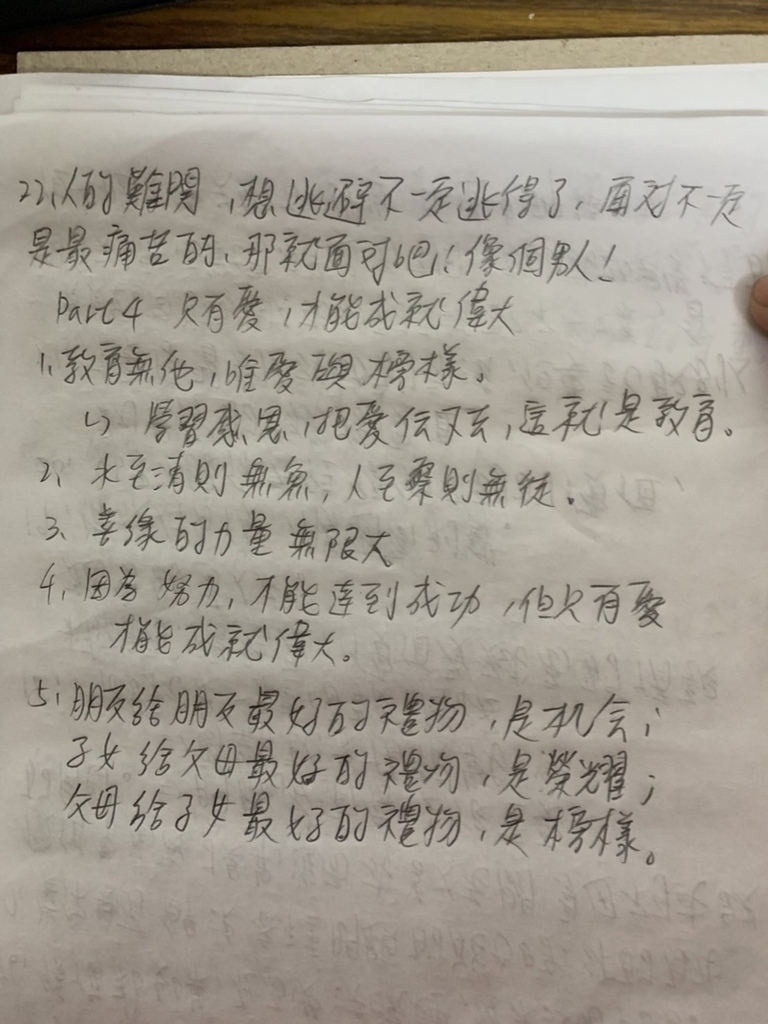 22、人的難關，想逃避不一定逃得了，面对不一定
是最痛苦的，那就面对吧！像個男人！
Part 4 只有愛，才能成就偉大
1、教育無他，唯愛與榜樣。
(1) 學習感恩，把愛传下去，這就是教育。
2、水至清則無魚，人至察則無徒。
3、善缘的力量無限大
4、因为努力，才能達到成功，但只有愛
才能成就偉大。
5、朋友給朋友最好的禮物，是机会；
子女給父母最好的禮物，是榮耀；
父母給子女最好的禮物，是榜樣。